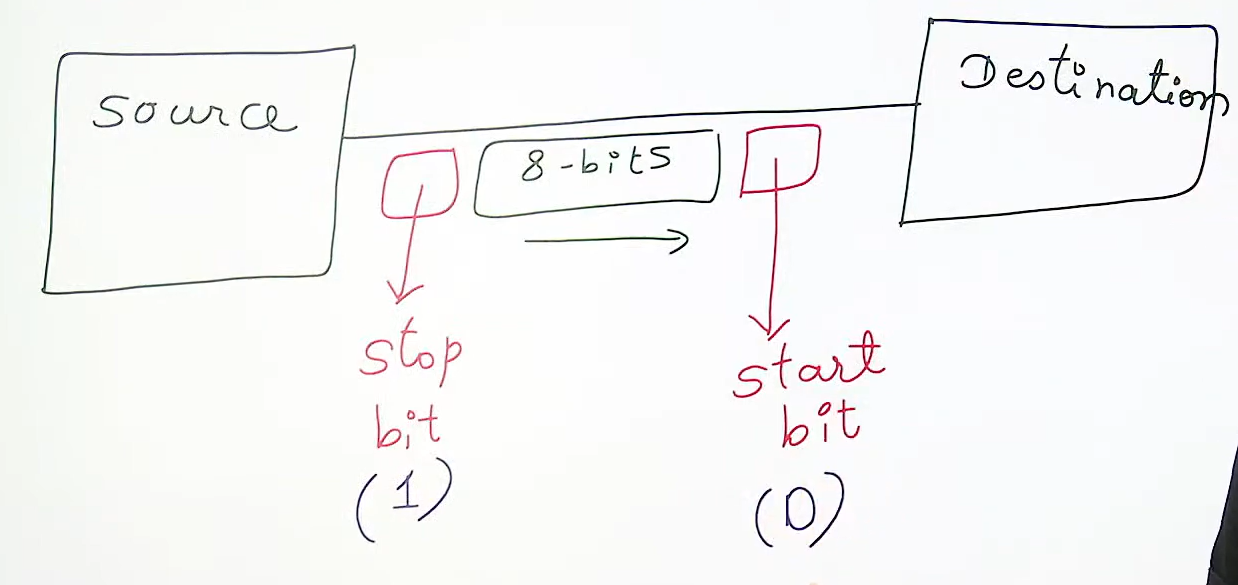 Source
Destination
8-bits
stop
bit
(1)
start
bit
(0)